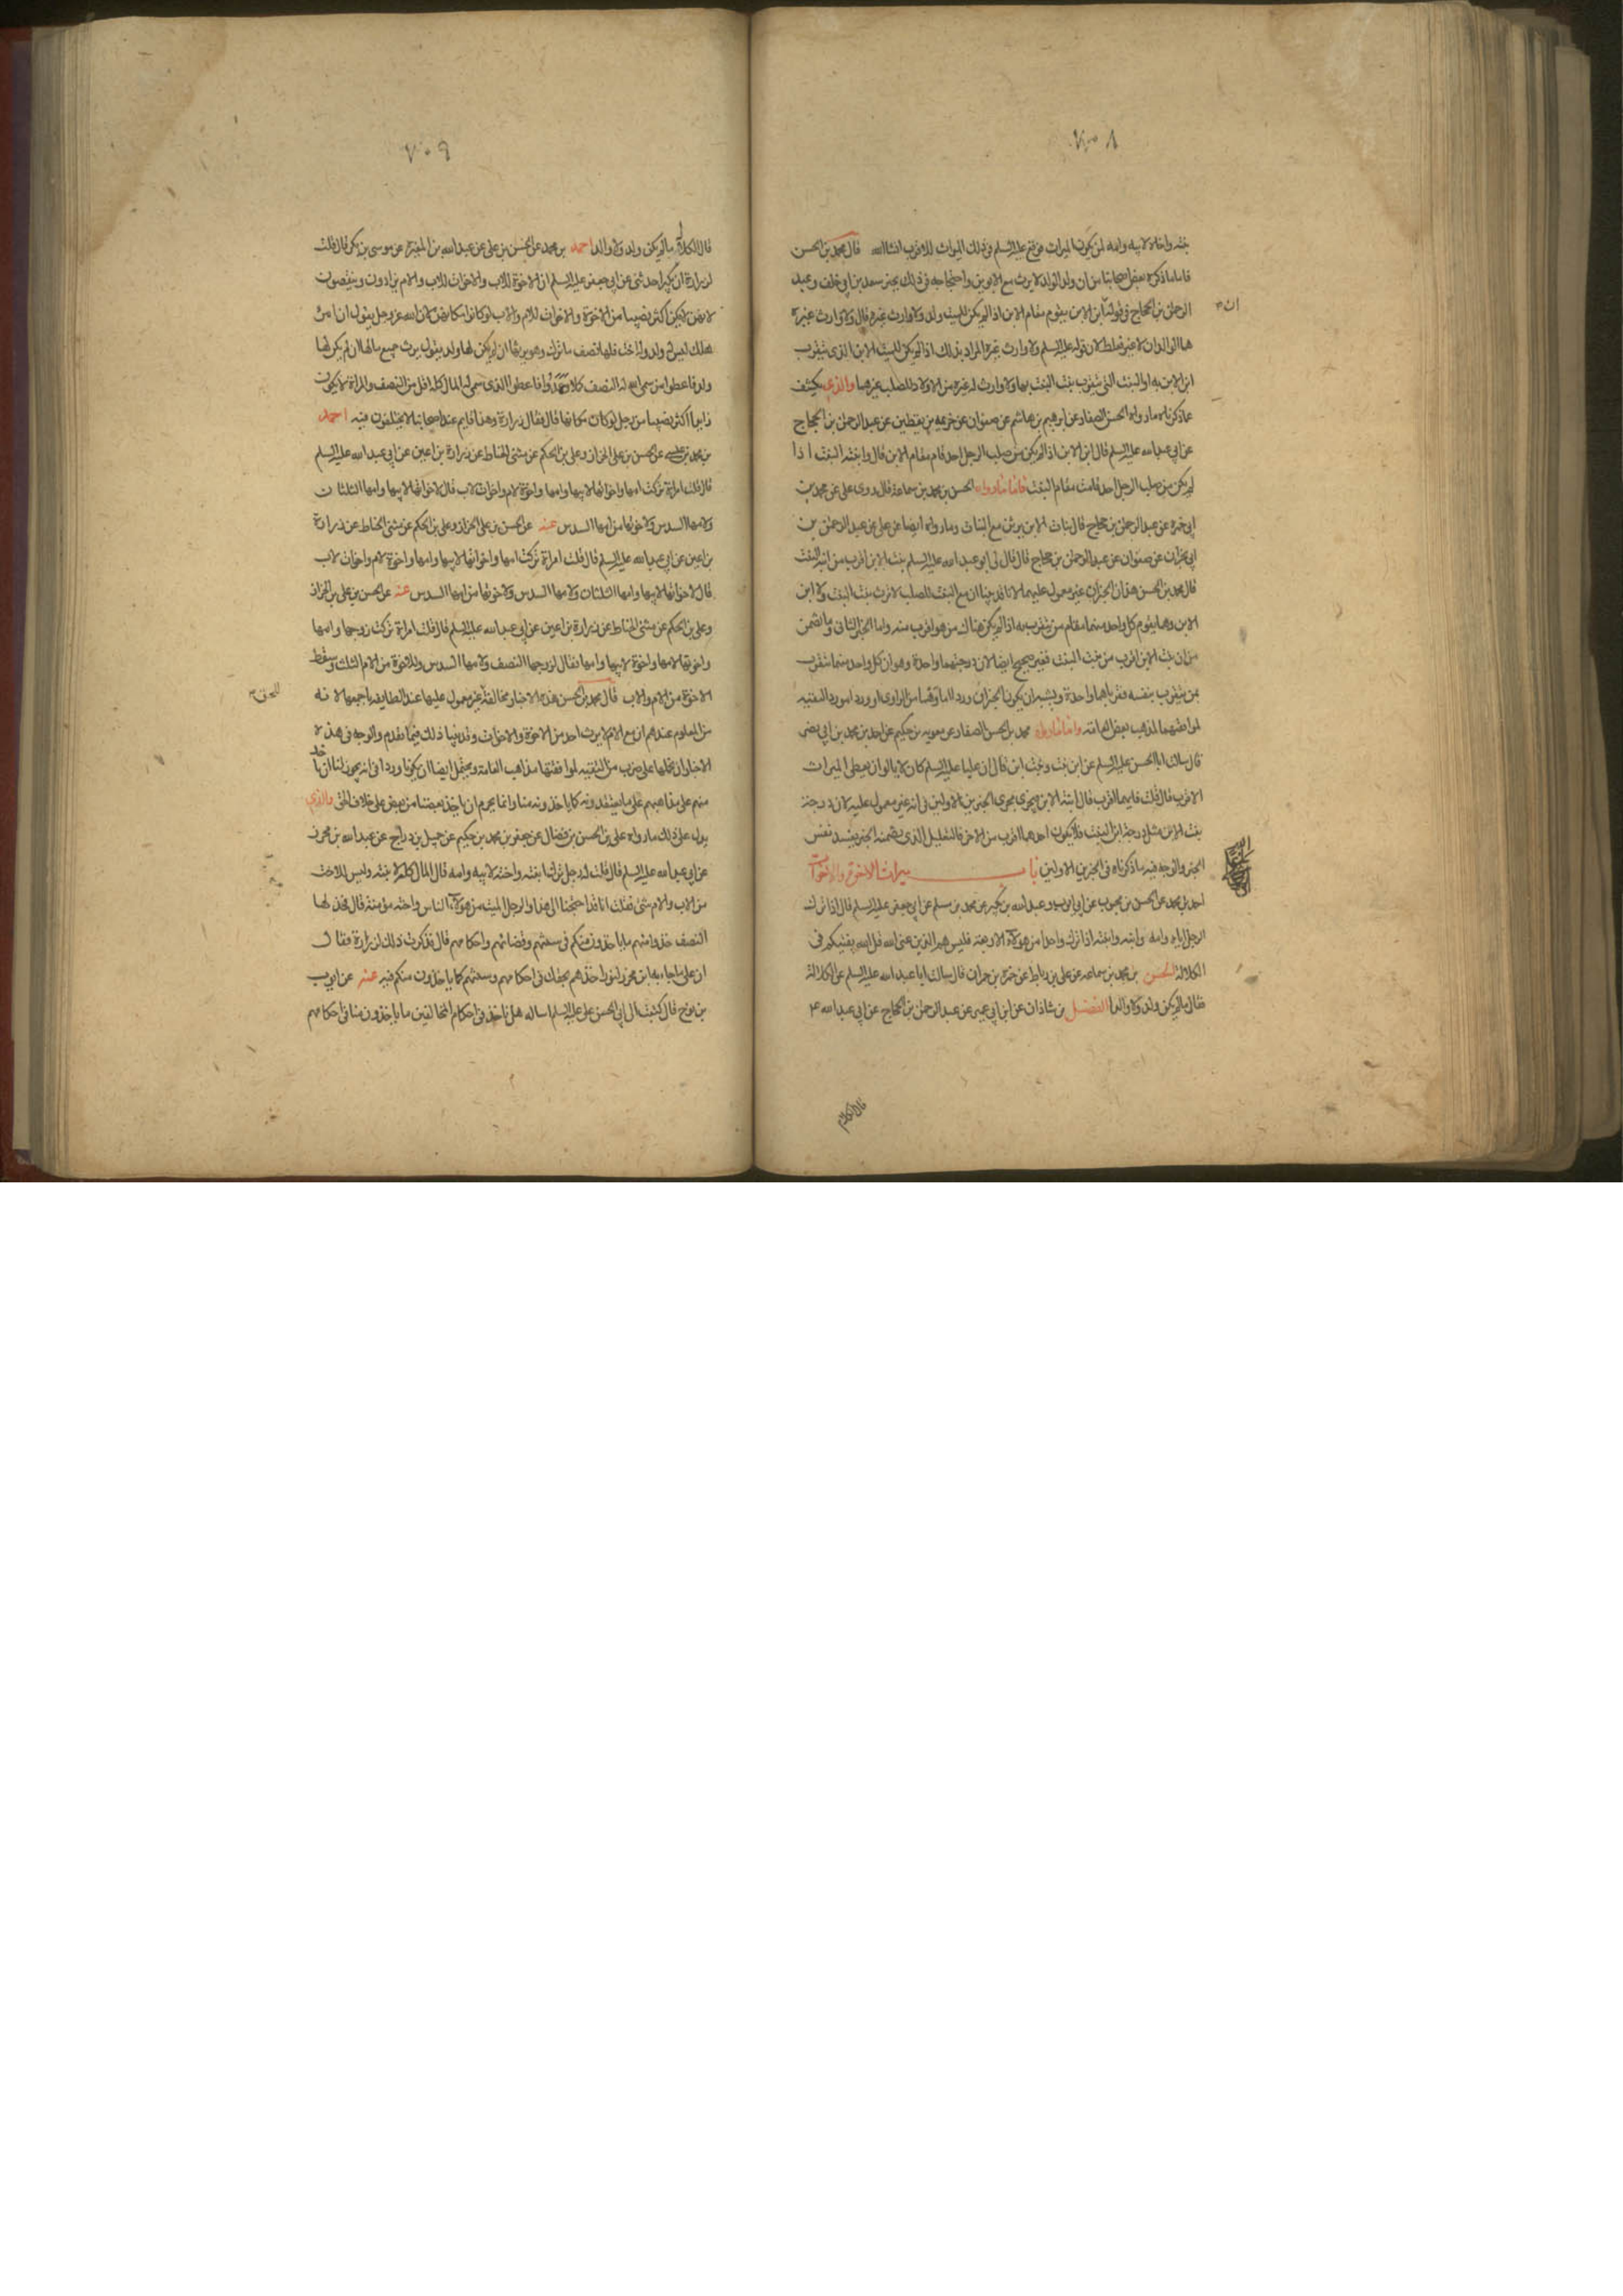 بنته واخاه لابيه وامه لمن يكون الميراث فوقع عليه السلم في ذلك الميراث للاقرب انشاالله قال محمد بن الحسن
فاما ما ذكره بعض اصحابنا من ان ولد الولد لا يرث مع الابوين واحتجاجه في ذلك بخبر سعد بن ابي خلف وعبد
الرحمن بن الحجاج في قوله ان ابن الابن يقوم مقام الابن اذا لم يكن للميت ولد ولا وارث غيره قال ولا وارث غيره
هما الوالدان لا غير فغلط لان قوله عليه السلم ولا وارث غيره المراد بذلك اذا لم يكن للميت الابن الذي يتقرب
ابن الابن به او البنت التي يتقرب بنت البنت بها ولا وارث له غيره من الاولاد للصلب غيرهما والذي يكشف
عما ذكرناه ما رواه الحسن الصفار عن ابرهيم بن هاشم عن صفوان عن خزيمه بن يقطين عن عبد الرحمن بن الحجاج
عن ابي عبد الله عليه السلم قال ابن الابن اذا لم يكن من صلب الرجل احد قام مقام الابن قال وابنة البنت اذا
لم يكن من صلب الرجل احد قامت مقام البنت فاما ما رواه الحسن بن محمد بن سماعة قال روى علي عن محمد بن
ابي حمزه عن عبد الرحمن بن حجاج قال بنات الابن يرثن مع البنات وما رواه ايضا عن علي عن عبد الرحمن بن
ابي نجران عن صفوان عن عبد الرحمن بن حجاج قال قال لي ابو عبد الله عليه السلم بنت الابن اقرب من ابنة البنت
قال محمد بن الحسن هذان الخبران غير معمول عليهما لانا قد بينا ان مع البنت للصلب لا ترث بنت البنت ولا ابن
الابن وهما يقوم كل واحد منهما مقام من يتقرب به اذا لم يكن هناك من هو اقرب منه واما الخبر الثاني وما تضمن
من ان بنت الابن اقرب من بنت البنت فغير صحيح ايضا لان درجتهما واحدة وهو ان كل واحد منهما يتقرب
بمن يتقرب بنفسه فقرباهما واحدة ويشبه ان يكون الخبران وردا اما وهما من الراوي او وردا مورد التقيه
لموافقتهما لمذهب بعض العامة واما ما رواه محمد بن الحسن الصفار عن معويه بن حكيم عن احمد بن محمد بن ابي نصر
قال سالت ابا الحسن عليه السلم عن ابن بنت وبنت ابن قال ان عليا عليه السلم كان لا يالوا ان يعطي الميراث
الاقرب قال قلت فايهما اقرب قال ابنة الابن فيجري مجرى الخبرين الاولين في انه غير معمول عليه لان درجة
بنت الابن مثل درجة ابن البنت فلا يكون احدهما اقرب من الاخر فالتعليل الذي يضمنه الخبر يفسد نفس
الخبر والوجه فيه ما ذكرناه في الخبرين الاولين باب ميراث الاخوة والاخوات
احمد بن محمد عن الحسن بن محبوب عن ابي ايوب وعبد الله بن بكير عن محمد بن مسلم عن ابي جعفر عليه السلم قال اذا ترك
الرجل اباه وامه وابنه وابنته اذا ترك واحدا من هؤلاء الاربعة فليس هم الذين عنى الله قل الله يفتيكم في
الكلالة الحسن بن محمد بن سماعه عن علي بن رباط عن حمزة بن حمران قال سالت ابا عبد الله عليه السلم عن الكلالة
فقال ما لم يكن ولد ولا والد الفضل بن شاذان عن ابن ابي عمير عن عبد الرحمن بن الحجاج عن ابي عبد الله ع
قال الكلالة
قال الكلالة ما لم يكن ولد ولا والد احمد بن محمد عن الحسن بن علي عن عبد الله بن المغيرة عن موسى بن بكر قال قلت
لزرارة ان بكيرا حدثني عن ابي جعفر عليه السلم ان الاخوة للاب والاخوات للاب والام يزادون وينقصون
لانهن لا يكن اكثر نصيبا من الاخوة والاخوات للام والاب لو كانوا مكانهن لان الله عز وجل يقول ان امرؤ
هلك ليس له ولد وله اخت فلها نصف ما ترك وهو يرثها ان لم يكن لها ولد يقول يرث جميع مالها ان لم يكن لها
ولد فاعطوا من سمى الله له النصف كملا وعمدوا فاعطوا الذي سمى له المال كله اقل من النصف والمراة لا تكون
ابدا اكثر نصيبا من رجل لو كان مكانها قال فقال زرارة وهذا قايم عند اصحابنا لا يختلفون فيه احمد
بن محمد بن عيسى عن الحسن بن علي الخزاز وعلي بن الحكم عن مثنى الحناط عن زرارة بن اعين عن ابي عبد الله عليه السلم
قال قلت امراة تركت امها واخواتها لابيها وامها واخوة لام واخوات لاب قال لاخواتها لابيها وامها الثلثان
ولامها السدس ولاخوتها من امها السدس عنه عن الحسن بن علي الخزاز وعلي بن الحكم عن مثنى الحناط عن زرارة
بن اعين عن ابي عبد الله عليه السلم قال قلت امراة تركت امها واخواتها لابيها وامها واخوة لام واخوات لاب
قال لاخواتها لابيها وامها الثلثان ولامها السدس ولاخوتها من امها السدس عنه عن الحسن بن علي الخزاز
وعلي بن الحكم عن مثنى الحناط عن زرارة بن اعين عن ابي عبد الله عليه السلم قال قلت امراة تركت زوجها وامها
واخوتها لامها واخوة لابيها وامها فقال لزوجها النصف ولامها السدس وللاخوة من الام الثلث وسقط
الاخوة من الام والاب قال محمد بن الحسن هذه الاخبار مخالفة غير معمول عليها عند الطايفه باجمعها لانه
من المعلوم عندهم ان مع الام لا يرث احد من الاخوة والاخوات وقد بينا ذلك فيما تقدم والوجه في هذه
الاخبار ان نحملها على ضرب من التقيه لموافقتها مذاهب العامة ويحتمل ايضا ان يكونا وردا في انه يجوز لنا ان ناخذ
منهم على مذاهبهم على ما يعتقدونه كما ياخذونه منا وانما يحرم ان ياخذ بعضنا من بعض على خلاف الحق والذي
يدل على ذلك ما رواه علي بن الحسن بن فضال عن جعفر بن محمد بن حكيم عن جميل بن دراج عن عبد الله بن محرز
عن ابي عبد الله عليه السلم قال قلت له رجل ترك ابنته واخته لابيه وامه قال المال كله لابنته وليس للاخت
من الاب والام شئ فقلت انا قد احتجنا الى هذا والرجل الميت من هؤلاء الناس واخته مؤمنة قال فخذ لها
النصف خذوا منهم ما ياخذون منكم في سنتهم وقضائهم واحكامهم قال فذكرت ذلك لزرارة فقال
ان على ما جاء به ابن محرز لنورا خذهم بحقك في احكامهم وسنتهم كما ياخذون منكم فيه عنه عن ايوب
بن نوح قال كتبت الى ابي الحسن علي عليه السلم اساله هل ناخذ في احكام المخالفين ما ياخذون منا في احكامهم